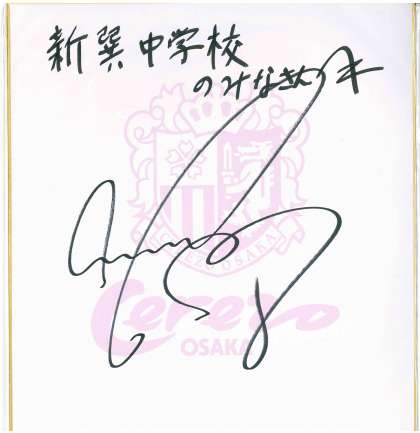 新巽中学校
のみなさんへ
CEREZO OSAKA
Cerezo
OSAKA